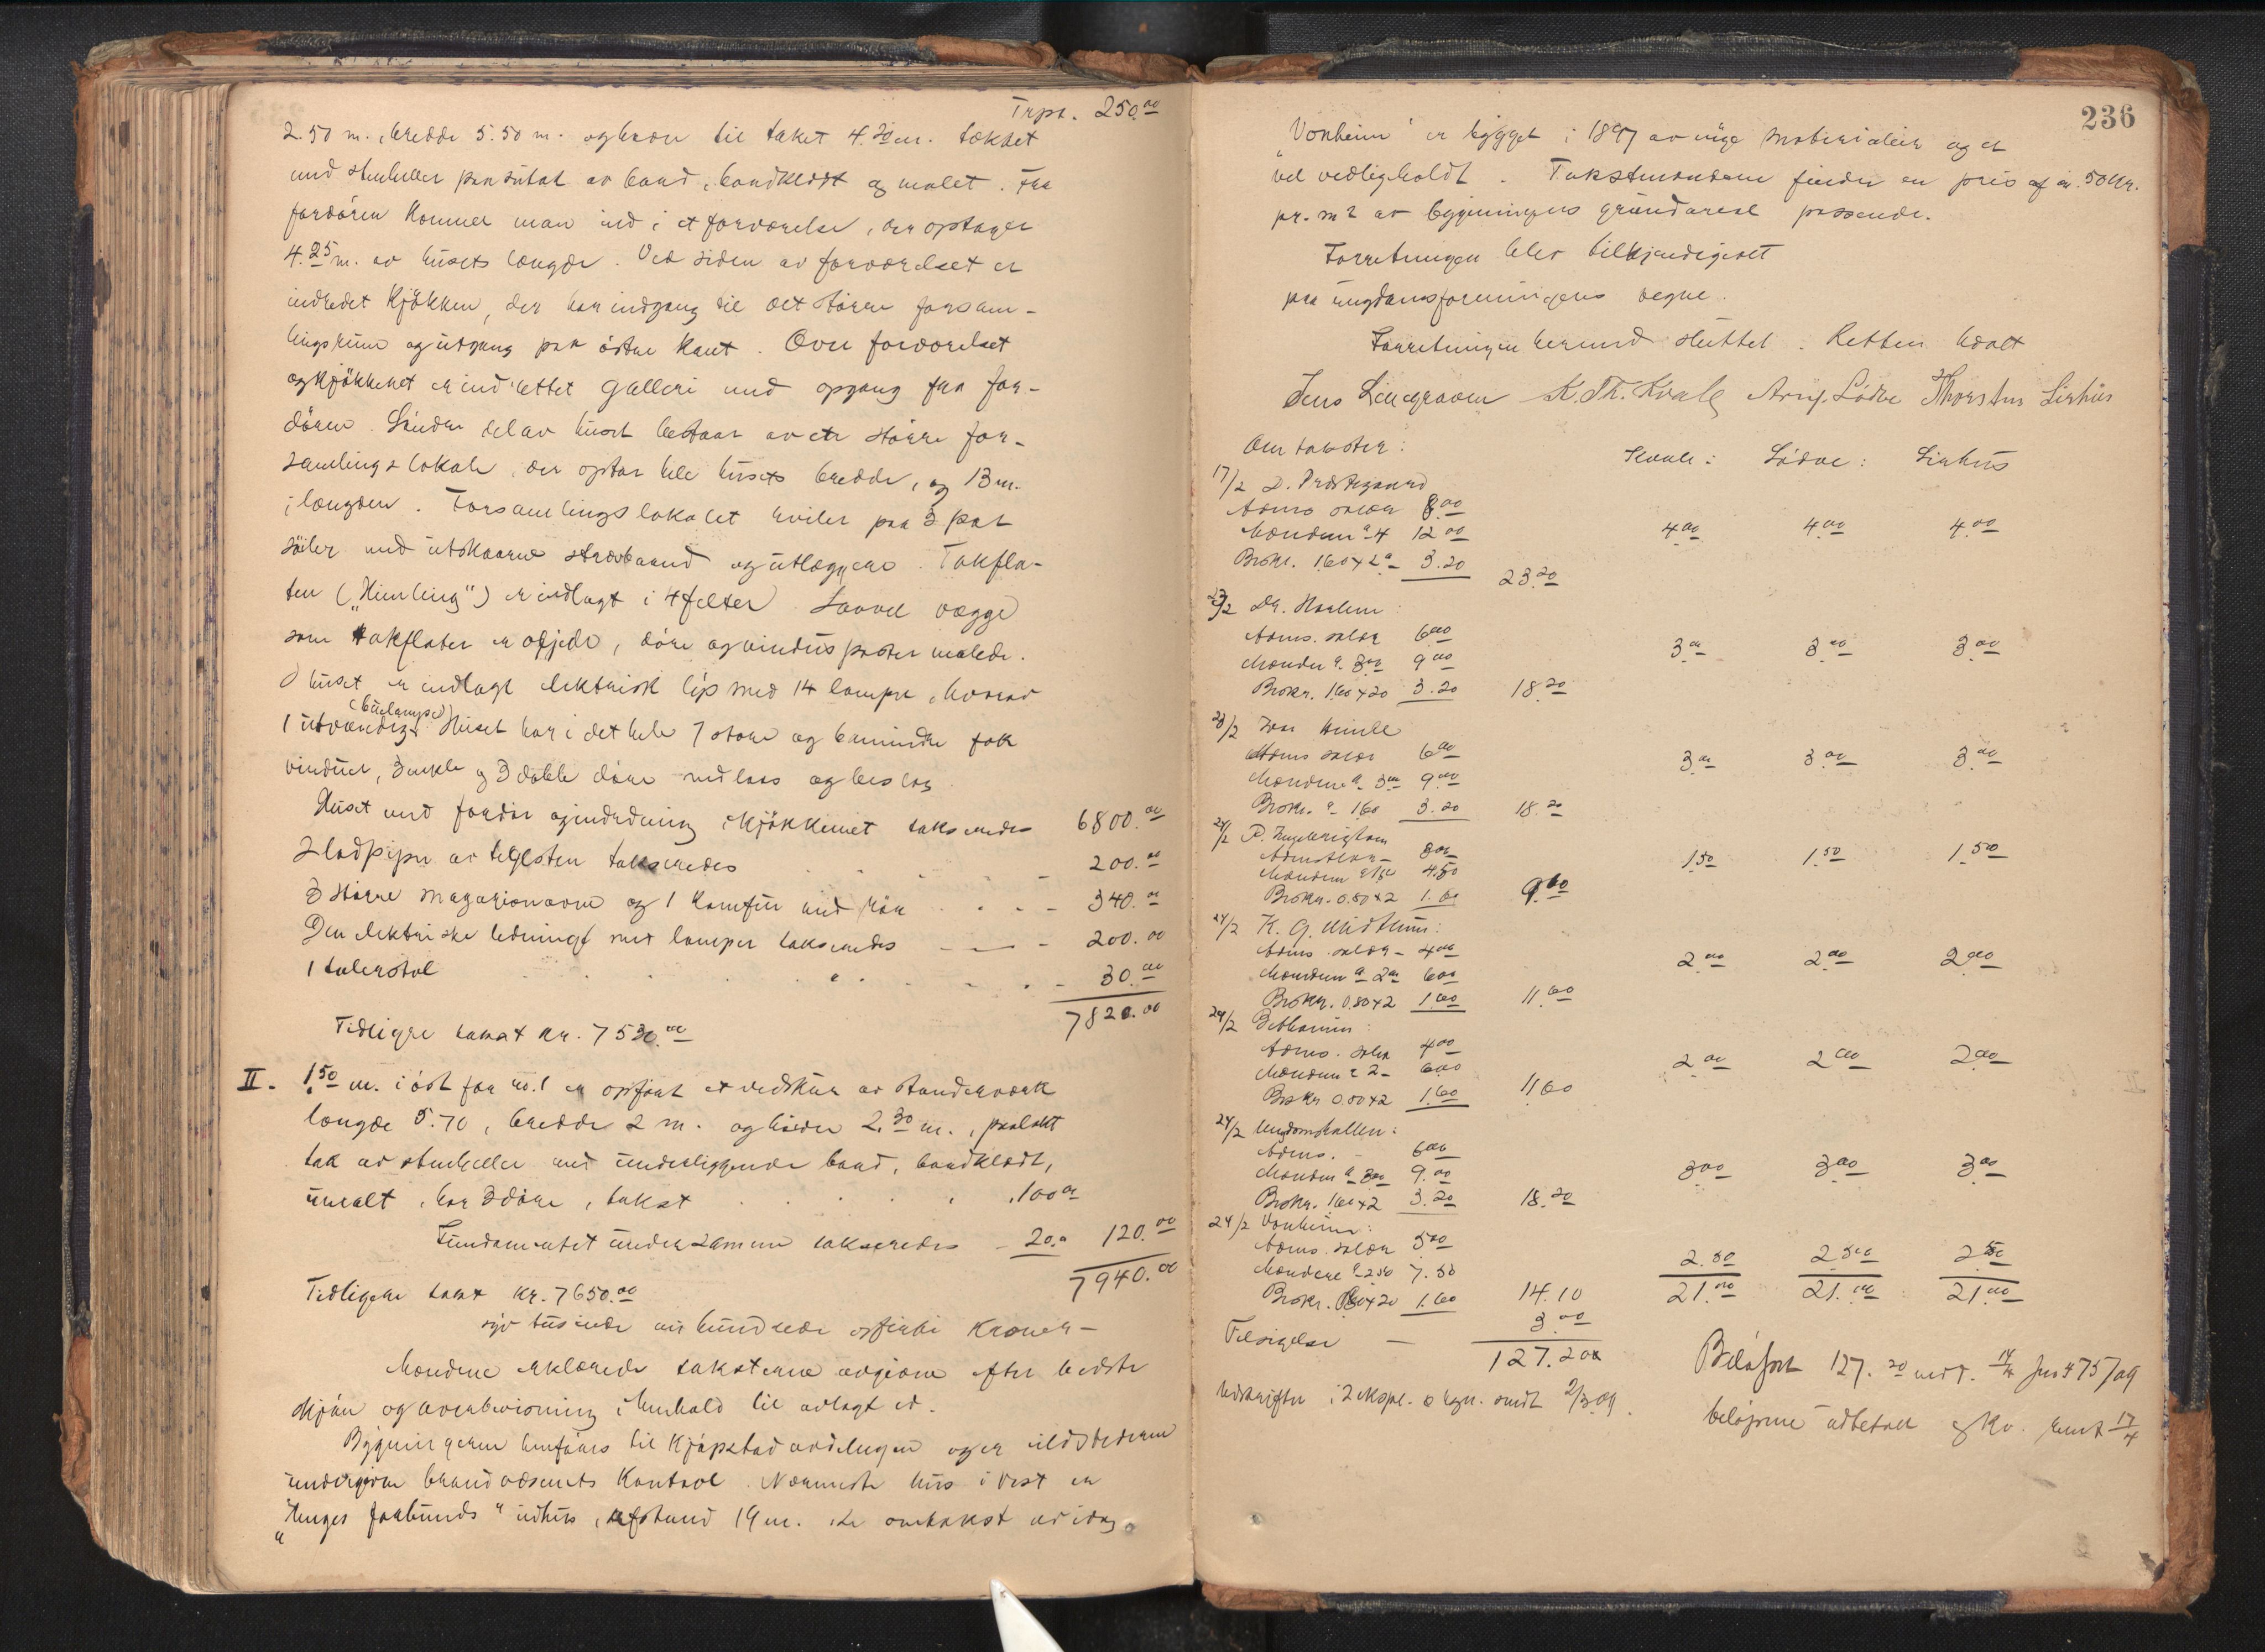 Trpt. 250.00
2.50 m. bredde 5.50 m. og høide til taket 4.30 m. tækket
med stenheller paa sutak av bord, bordklædt og malet. Fra
fordören kommer man ind i et forværelse, der optager
4.25 m. av husets længde. Ved siden av forværelset er
indredet kjökken, der har indgang til det större forsam-
lingsrum og utgang paa östre kant. Over forværelset
og kjökkenet er indrettet galleri med opgang fra for-
dören. Söndre del av huset bestaar av et större for-
samlingslokale, der optar hele husets bredde, og 13 m.
i længden. Forsamlingslokalet hviler paa 3 par
söiler med utskaarne strævbaand og utlæggere. Takfla-
ten ("Himling") er indlagt i 4 felter. Saavel vægge
som takflater er oljede, döre og vindusposter malede.
I huset er indlagt elektrisk lys med 14 lamper, hvorav
1 utvændig (buelampe). Huset har i det hele 7 store og 6 mindre fak
vinduer, 3 enkle og 3 doble döre med laas og beslag
Huset med fordör og indredning i kjökkenet takseredes 6800.00
2 ladpiper av teglsten takseredes 200.00
3 större magasinovne og 1 komfur med rör 340.00
Den elektriske ledning med lamper takseredes 200.00
1 talerstol 30.00
7820.00
Tidligre takst kr. 7530.00
II. 1.50 m. i öst for no. 1 er opfört et vedskur av standerværk
længde 5.70, bredde 2 m. og höide 2.30 m., paalagt
tak av stenheller med underliggende bord, bordklædt,
umalt, har 3 döre, takst 100.00
Fundamentet under samme takseredes 20.00 120.00
7940.00
Tidligere takst kr. 7650.00
syv tusinde ni hundrede og firti kroner
Mændene erklærede taksterne avgivne efter bedste
skjön og overbevisning i henhold til avlagt ed.
Bygningerne henföres til kjöpstadavdelingen og er ildstederne
undergivne brandvæsenets kontrol. Nærmeste hus i vest er
"Unges forbunds" uthus, afstand 19 m.
236
"Vonheim" er bygget i 1897 av nye materialier og er
vel vedligholdt. Takstmændene finder en pris af kr. 50 kr.
pr. m2 av bygningens grundareal passende.
Forretningen blev tilkjendegivet
paa ungdomsforeningens vegne.
Forretningen hermed sluttet. Retten hævet
K. Th. Kvale Arnf. Lödve Thorsten Lirhus
Omtakster: Kvale: Lödve: Lirhus
17/2 D. Prestegaard
Adms salær 8.00
Mændene a 4 12.00 4.00 4.00 4.00
Brokr. 1.60 x 2 3.20 23.20
23/2 Dr. Haalem:
Adms. salær 6.00
Mændene a 3.00 9.00 3.00 3.00 3.00
Brokr. 1.60 x 2 3.20 18.20
23/2 Jon Himle
Adms salær 6.00
Mændene a 3.00 9.00 3.00 3.00 3.00
Brokr. a 1.60 3.20 18.20
24/2 P. Engebrigtsen
Adms salær 3.00
Mændene a 1.50 4.50 1.50 1.50 1.50
Brokr. 0.80 x 2 1.60 9.60
24/2 K. G. Midttun:
Adms. salær 4.00
Mændene a 2.00 6.00 2.00 2.00 2.00
Brokr. 0.80 x 2 1.60 11.60
24/2 Bethania:
Adms. salær 4.00
Mændene a 2 6.00 2.00 2.00 2.00
Brokr 0.80 x 2 1.60 11.60
24/2 Ungdomshallen:
Adms. 6.00
Mændene a 3.00 9.00 3.00 3.00 3.00
Brokr. 1.60 x 2 3.20 18.20
24/2 Vonheim:
Adms. salær 5.00
Mændene a 2.50 7.50 2.50 2.50 2.50
Brokr. 0.80 x 2 1.60 14.10 21.00 21.00 21.00
Tilsigelse 3.00
127.20
Utskrifter i 2 ekspl. sendt 2/3 09.
Belöpet 127.20 475/09
belöpene utbetalt 17/4